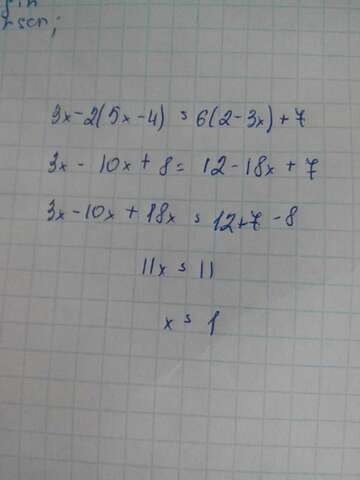 3x-2(5x-4) = 6(2-3x)+7
3x - 10x + 8 = 12-18x + 7
3x-10x + 18x = 12+7-8
11x = 11
x = 1